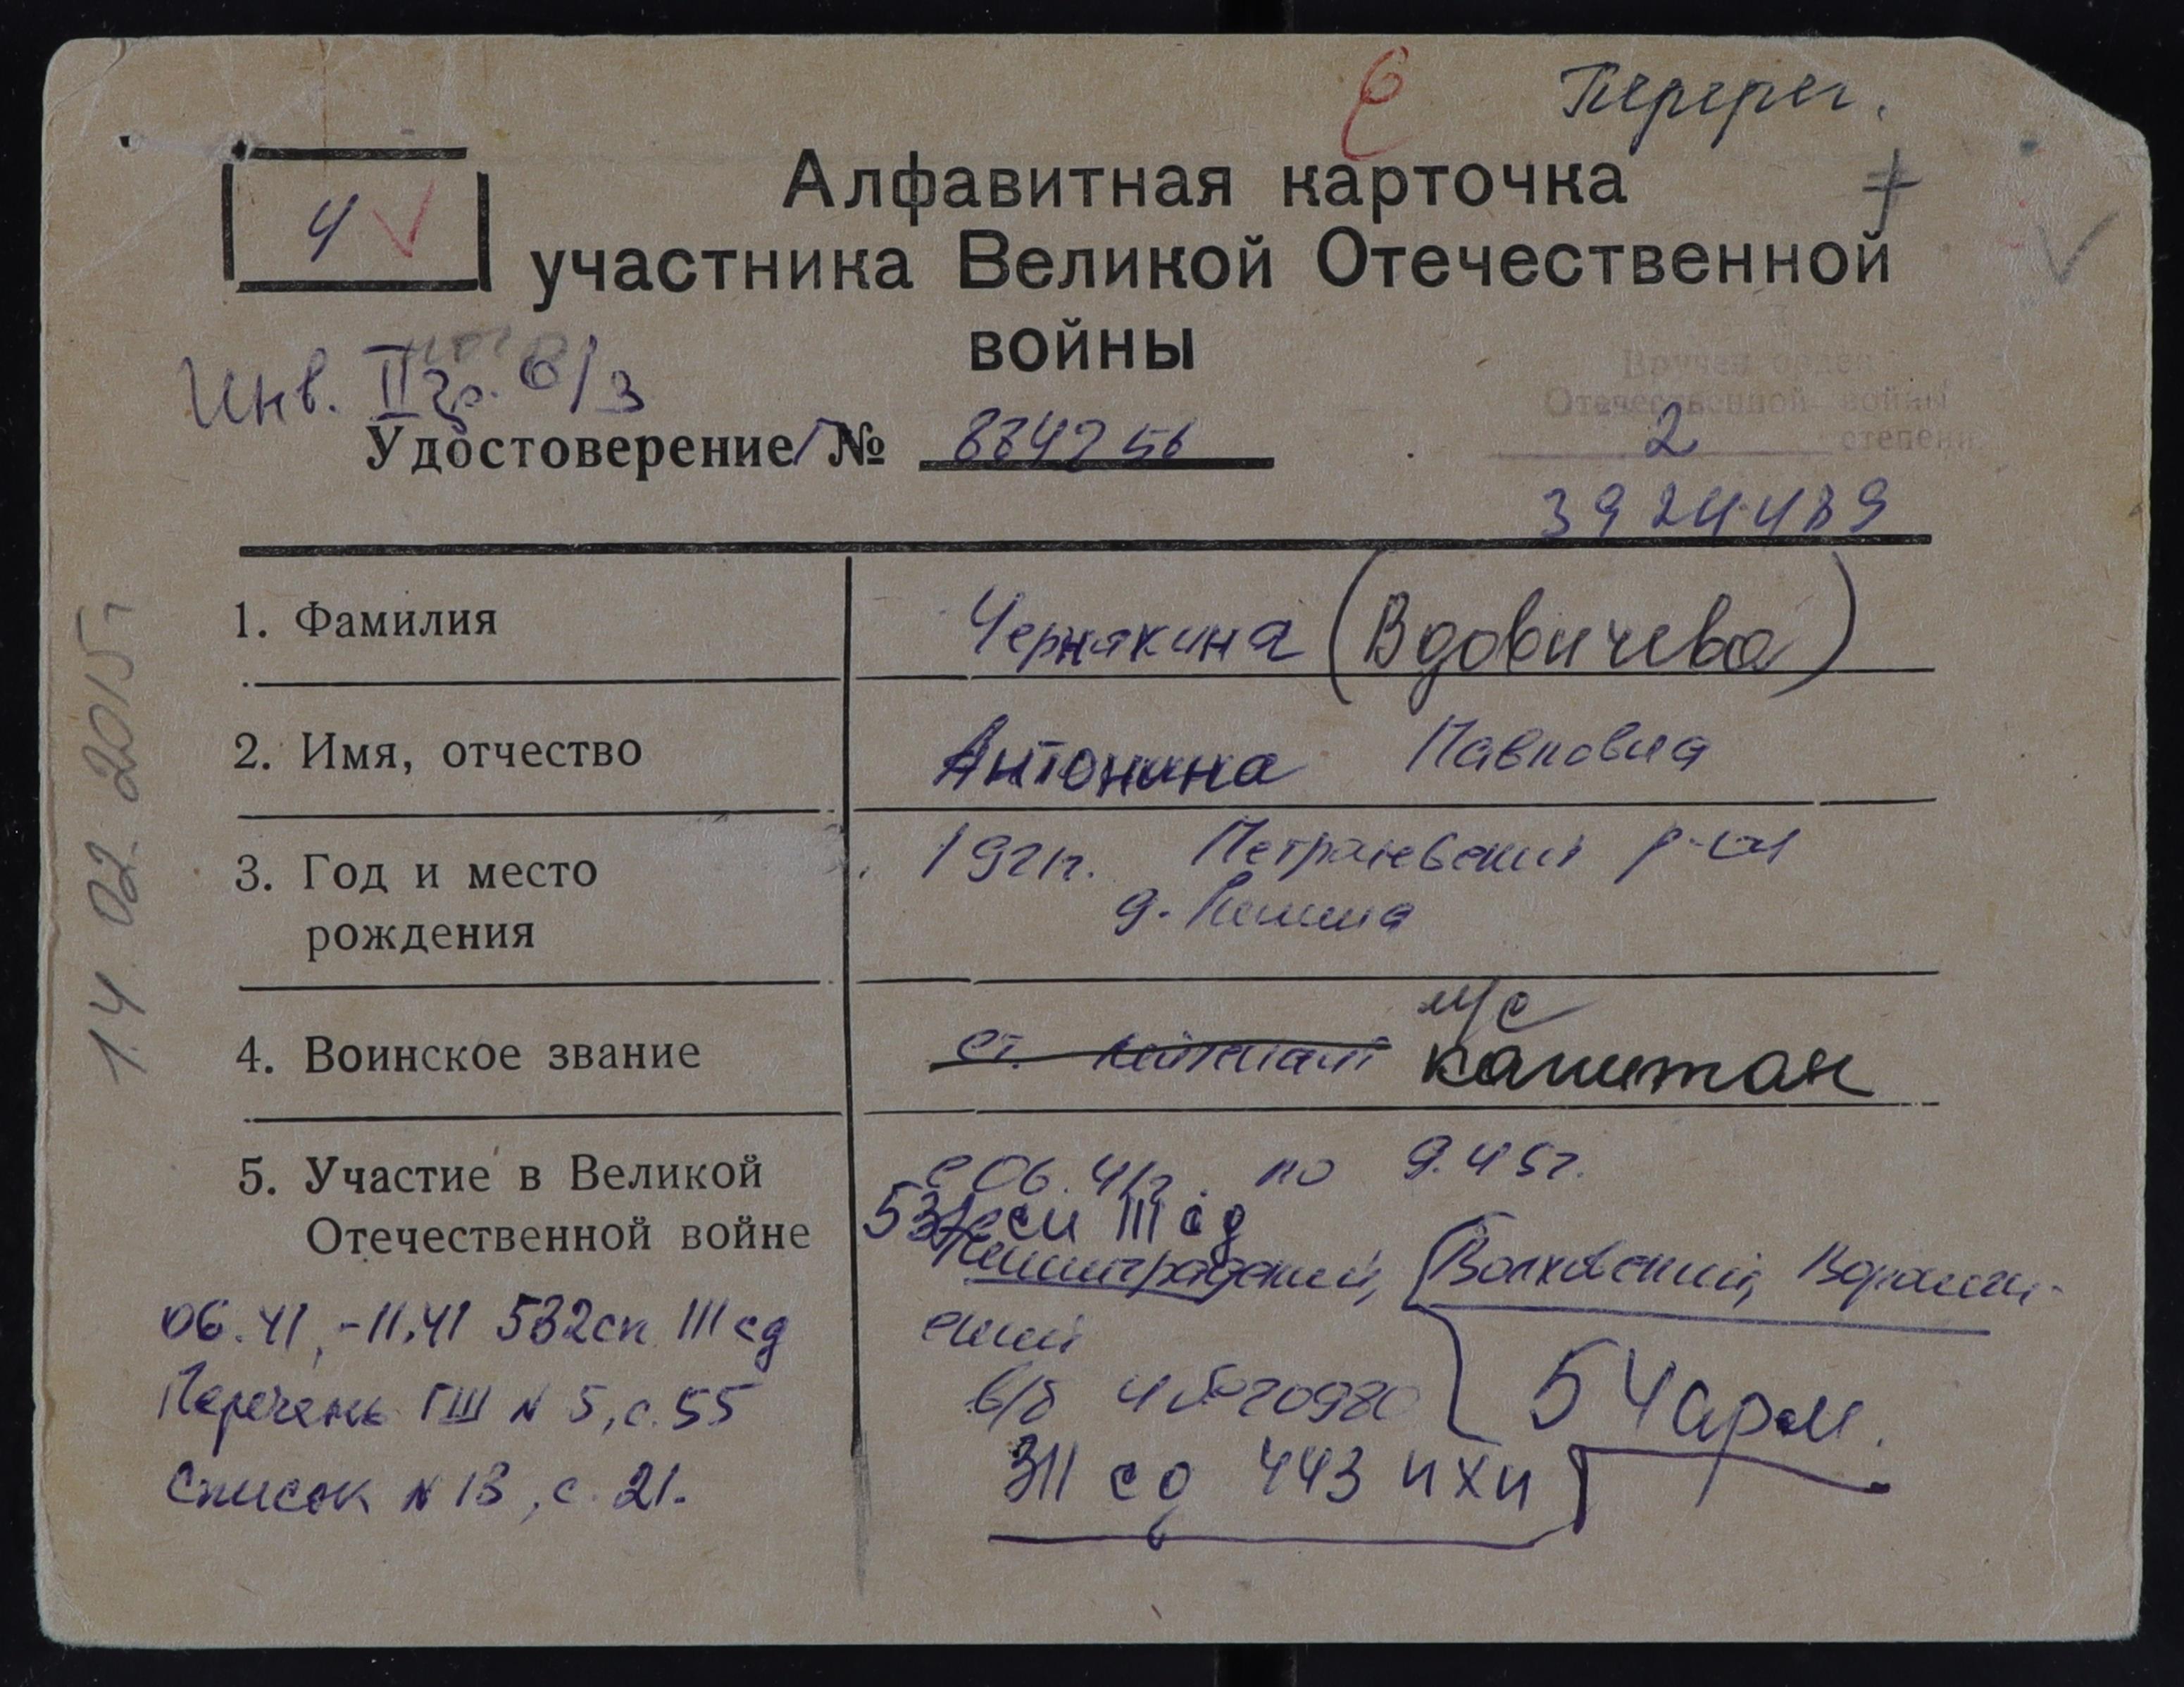 Перерег.
Алфавитная карточка
участника Великой Отечественной
войны
Ч
Инв. II гр. б/з
Удостоверение Г № 8842 56
Вручен орден
Отечественной войны
2 степени
3924489
1. Фамилия Чернякина (Вдовичева)
2. Имя, отчество Антонина Павловна
3. Год и место 1921г. р-он
рождения д.
4. Воинское звание ст. лейтенант м/с капитан
5. Участие в Великой с 06.41г. по 9.45г.
532 сп 111 сд
Отечественной войне Ленинградский, Волховский, Воронеж-
ский
06.41,-11.41 532сп 111 сд
Перечень ГШ N 5, с. 55
Список N 13, с. 21.
54 арм.
311 сд 443
14.02.2015г